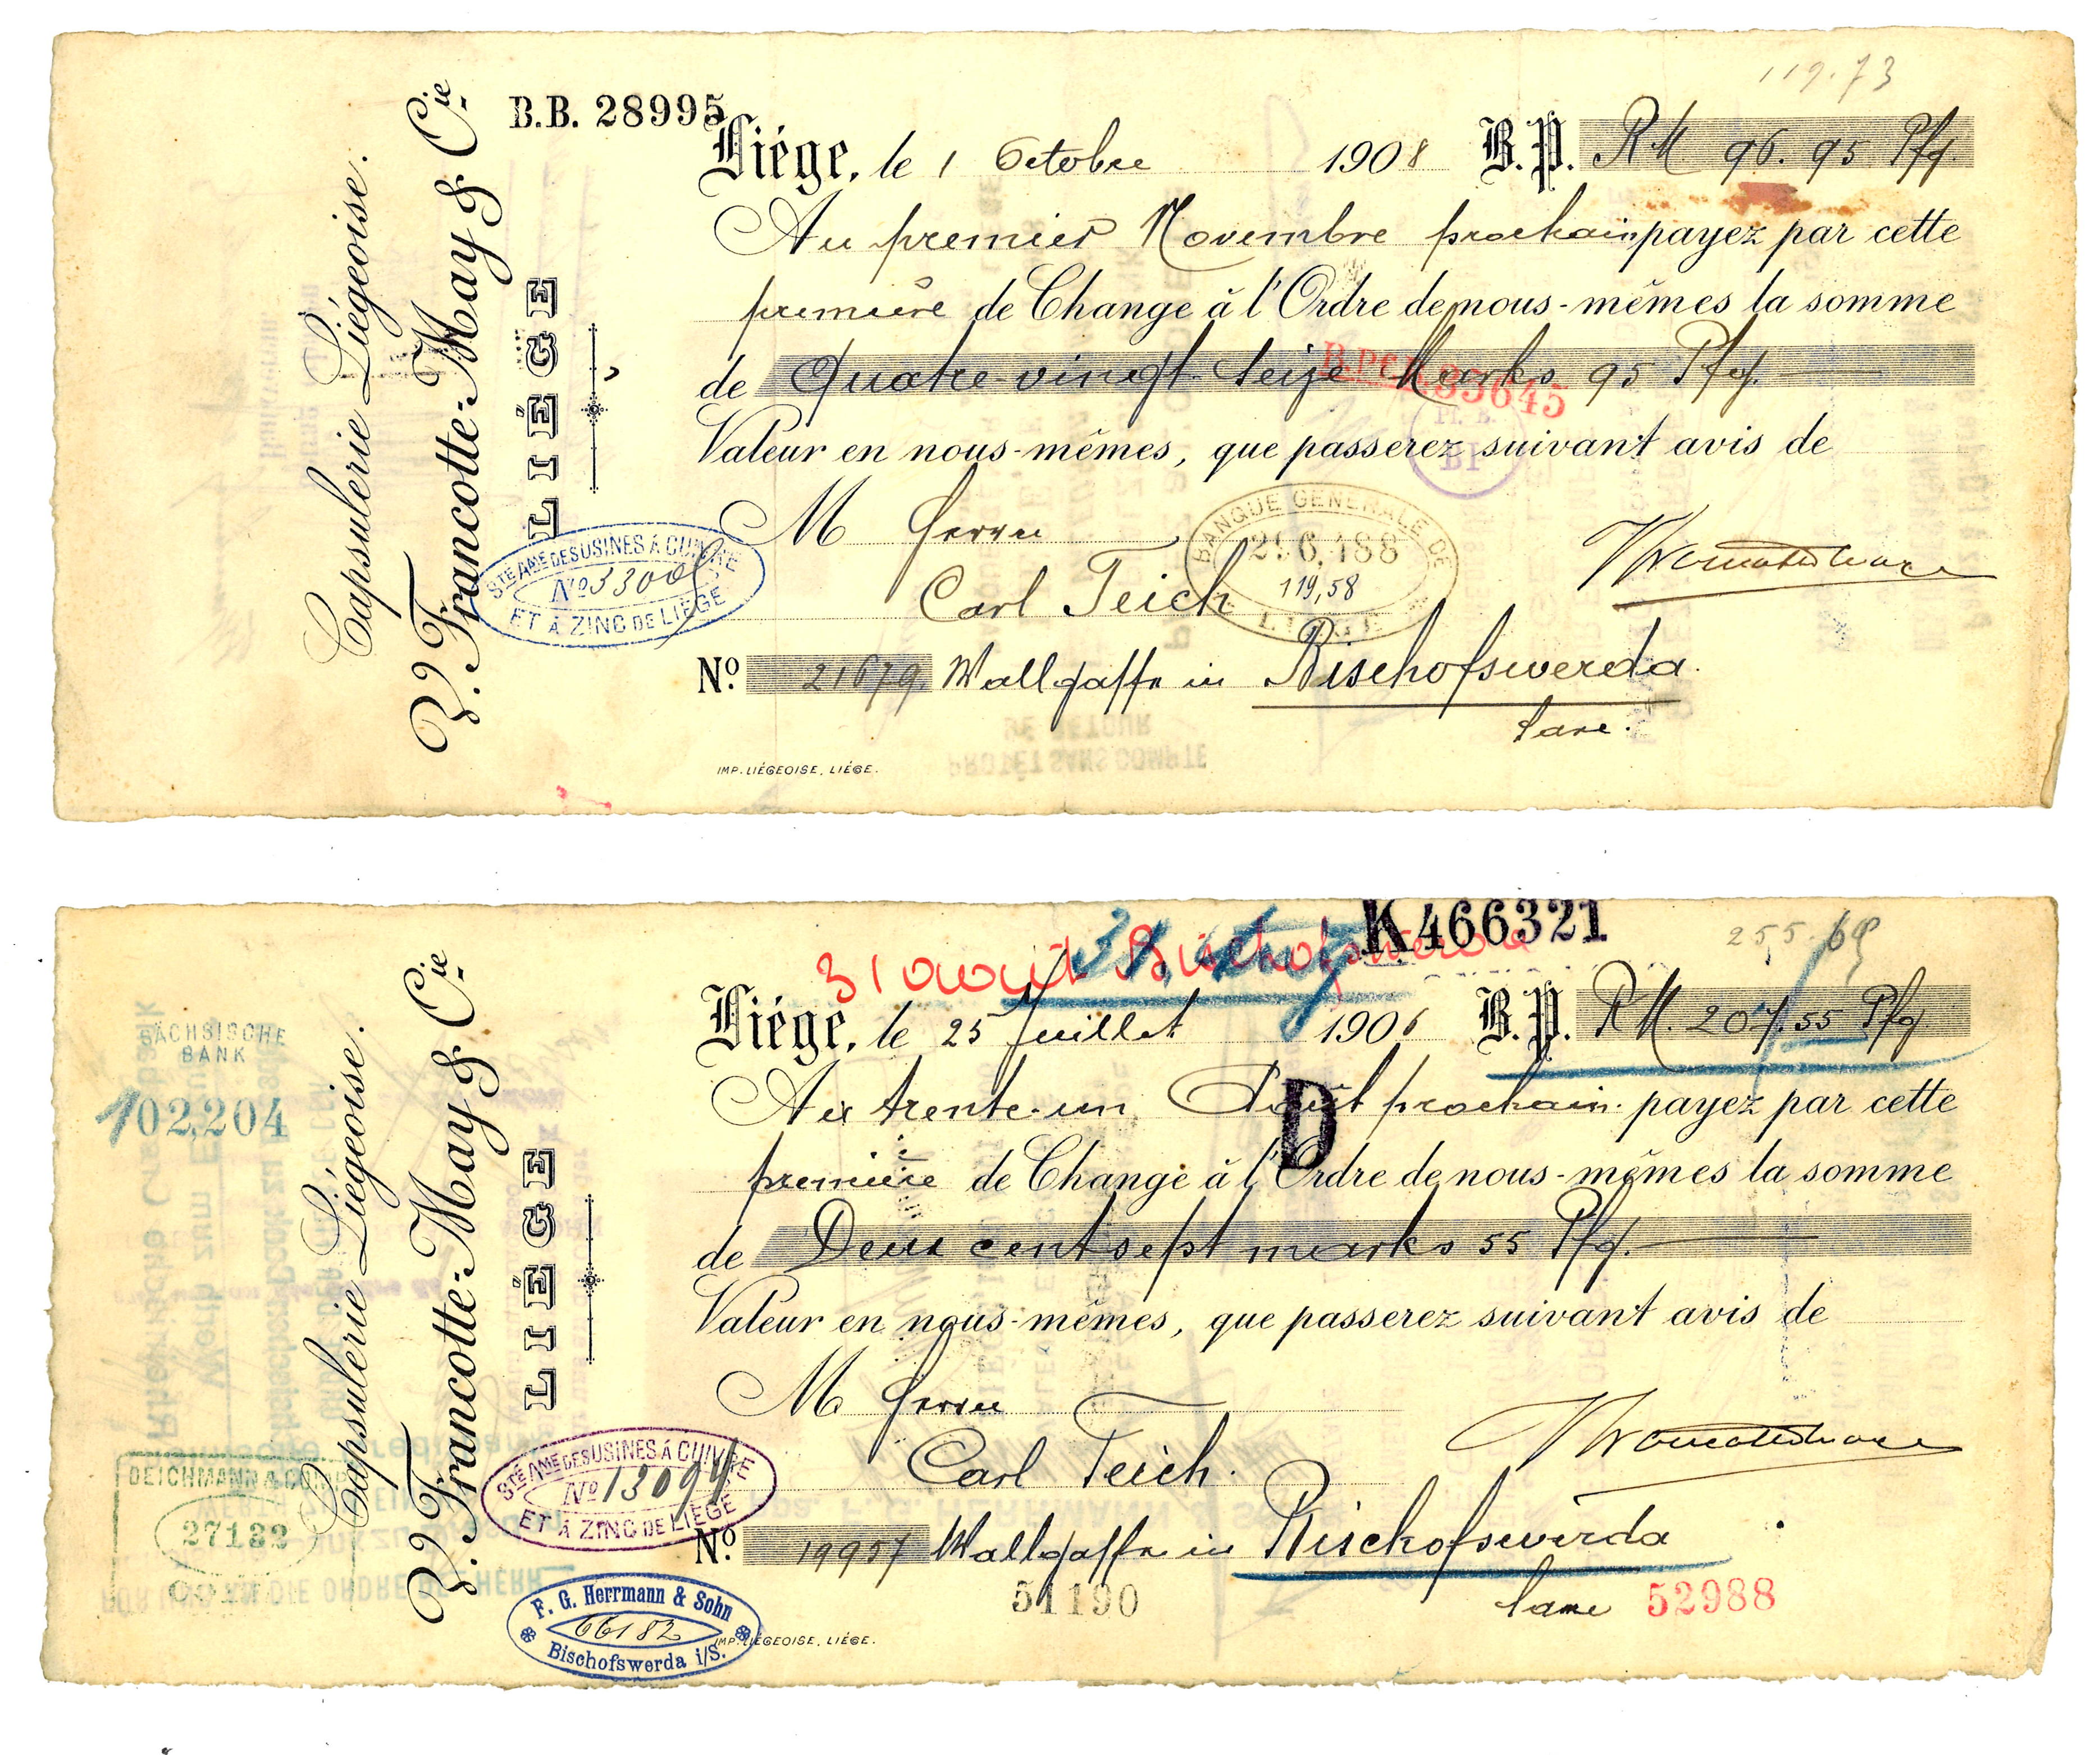 119.73
B.B. 28995
Capsulerie Liégeoise.
Francotte-May & Cie
LIÉGE
Liége, le 1 Octobre 1908 B.P. RM 96.95 Pfg.
Au premier Novembre prochain payez par cette
première de Change à l'Ordre de nous-mêmes la somme
de Quatre-vingt seize Marks 95 Pfg.
Valeur en nous-mêmes, que passerez suivant avis de
M Herrn
BANQUE GENERALE DE
LIEGE
119,58
STÉ AME DES USINES À CUIVRE
ET À ZINC DE LIÈGE
Carl Teich
No. 21679 Wallgasse in Bischofswerda.
PROTÊT SANS COMPTE
DE RETOUR
IMP. LIÉGEOISE, LIÉGE.
K466321
31 août Bischofswerda
255.69
SÄCHSISCHE
BANK
102,204
Capsulerie Liégeoise.
Francotte-May & Cie
LIÉGE
Liége, le 25 Juillet 1906 B.P. RM 207.55 Pfg
Au trente-un Août prochain payez par cette
D
première de Change à l'Ordre de nous-mêmes la somme
de Deux cent sept marks 55 Pfg.
Valeur en nous-mêmes, que passerez suivant avis de
M Herrn
Carl Teich.
DEICHMANN & COMP
27132
STÉ AME DES USINES À CUIVRE
No 13094
ET À ZINC DE LIÈGE
No. 19957 Wallgasse in Bischofswerda
51190
52988
F. G. Herrmann & Sohn
66182
Bischofswerda i/S.
IMP. LIÉGEOISE, LIÉGE.